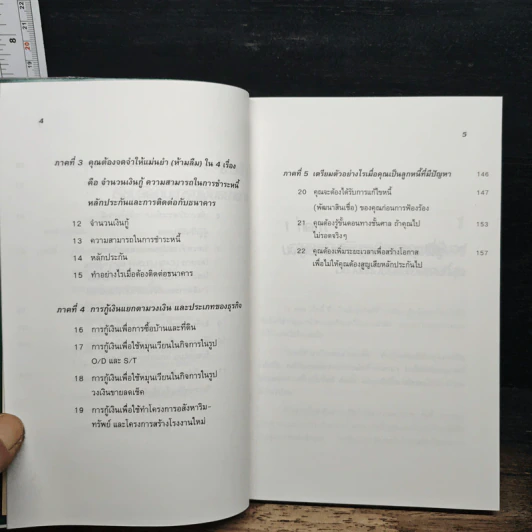 4
ภาคที่ 3 คุณต้องจดจำให้แม่นยำ (ห้ามลืม) ใน 4 เรื่อง
คือ จำนวนเงินกู้ ความสามารถในการชำระหนี้
หลักประกันและการติดต่อกับธนาคาร
12 จำนวนเงินกู้
13 ความสามารถในการชำระหนี้
14 หลักประกัน
15 ทำอย่างไรเมื่อต้องติดต่อธนาคาร
ภาคที่ 4 การกู้เงินแยกตามวงเงิน และประเภทของธุรกิจ
16 การกู้เงินเพื่อการซื้อบ้านและที่ดิน
17 การกู้เงินเพื่อใช้หมุนเวียนในกิจการในรูป
O/D และ S/T
18 การกู้เงินเพื่อใช้หมุนเวียนในกิจการในรูป
วงเงินขายลดเช็ค
19 การกู้เงินเพื่อใช้ทำโครงการอสังหาริม-
ทรัพย์ และโครงการสร้างโรงงานใหม่
5
ภาคที่ 5 เตรียมตัวอย่างไรเมื่อคุณเป็นลูกหนี้ที่มีปัญหา 146
20 คุณจะต้องได้รับการแก้ไขหนี้ 147
(พัฒนาสินเชื่อ) ของคุณก่อนการฟ้องร้อง
21 คุณต้องรู้ขั้นตอนทางชั้นศาล ถ้าคุณไป 153
ไม่รอดจริงๆ
22 คุณต้องเพิ่มระยะเวลาเพื่อสร้างโอกาส 157
เพื่อไม่ให้คุณต้องสูญเสียหลักประกันไป
8
22
21
20
19